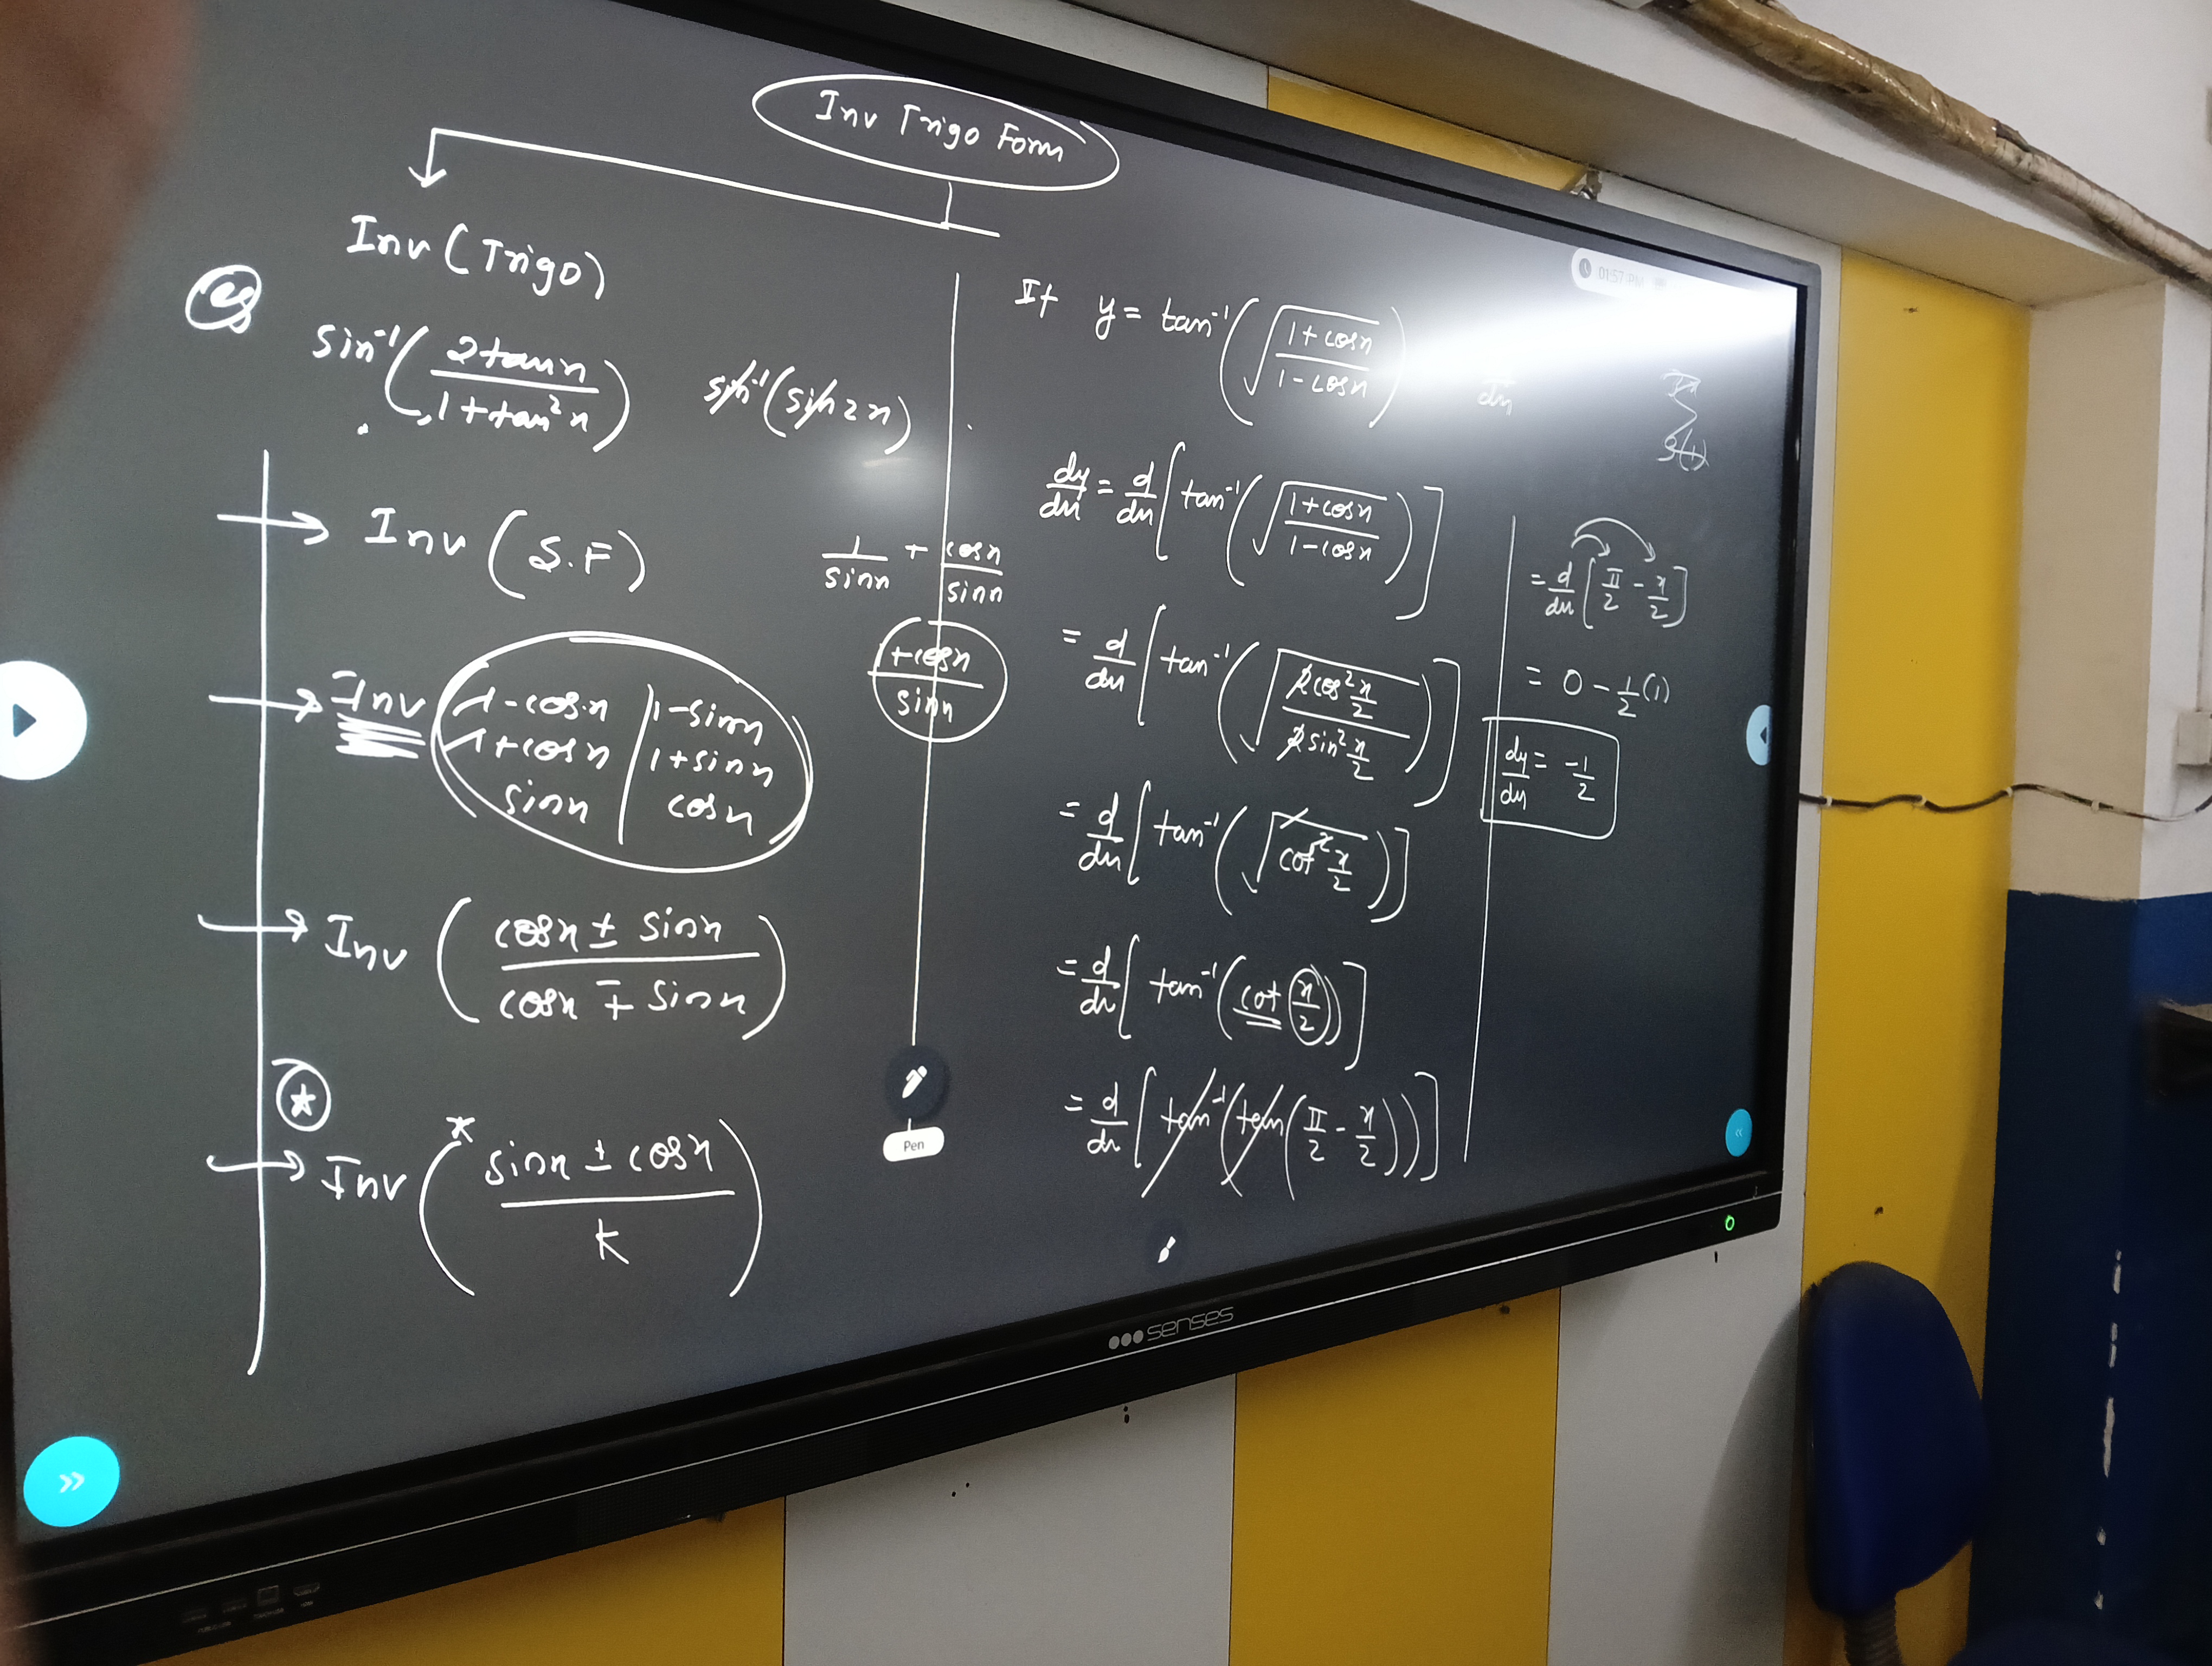 Inv Trigo Form
Inv (Trigo)
eg
sin⁻¹(2tanx / 1+tan²x) sin⁻¹(sin2x)
→ Inv (S.F)
1/sinx + cosx/sinx
→ Inv (1-cosx | 1-sinx
1+cosx | 1+sinx
sinx | cosx)
1+cosx / sinx
→ Inv (cosx ± sinx / cosx ∓ sinx)
→ Inv (* sinx ± cosx / k)
If y = tan⁻¹(√(1+cosx / 1-cosx))
dx
dy/dx = d/dx [tan⁻¹(√(1+cosx / 1-cosx))]
= d/dx [tan⁻¹(√(2cos² x/2 / 2sin² x/2))]
= d/dx [tan⁻¹(√(cot² x/2))]
= d/dx [tan⁻¹(cot (x/2))]
= d/dx [tan⁻¹(tan(π/2 - x/2))]
= d/dx [π/2 - x/2]
= 0 - 1/2 (1)
dy/dx = -1/2
01:57 PM
Pen
senses